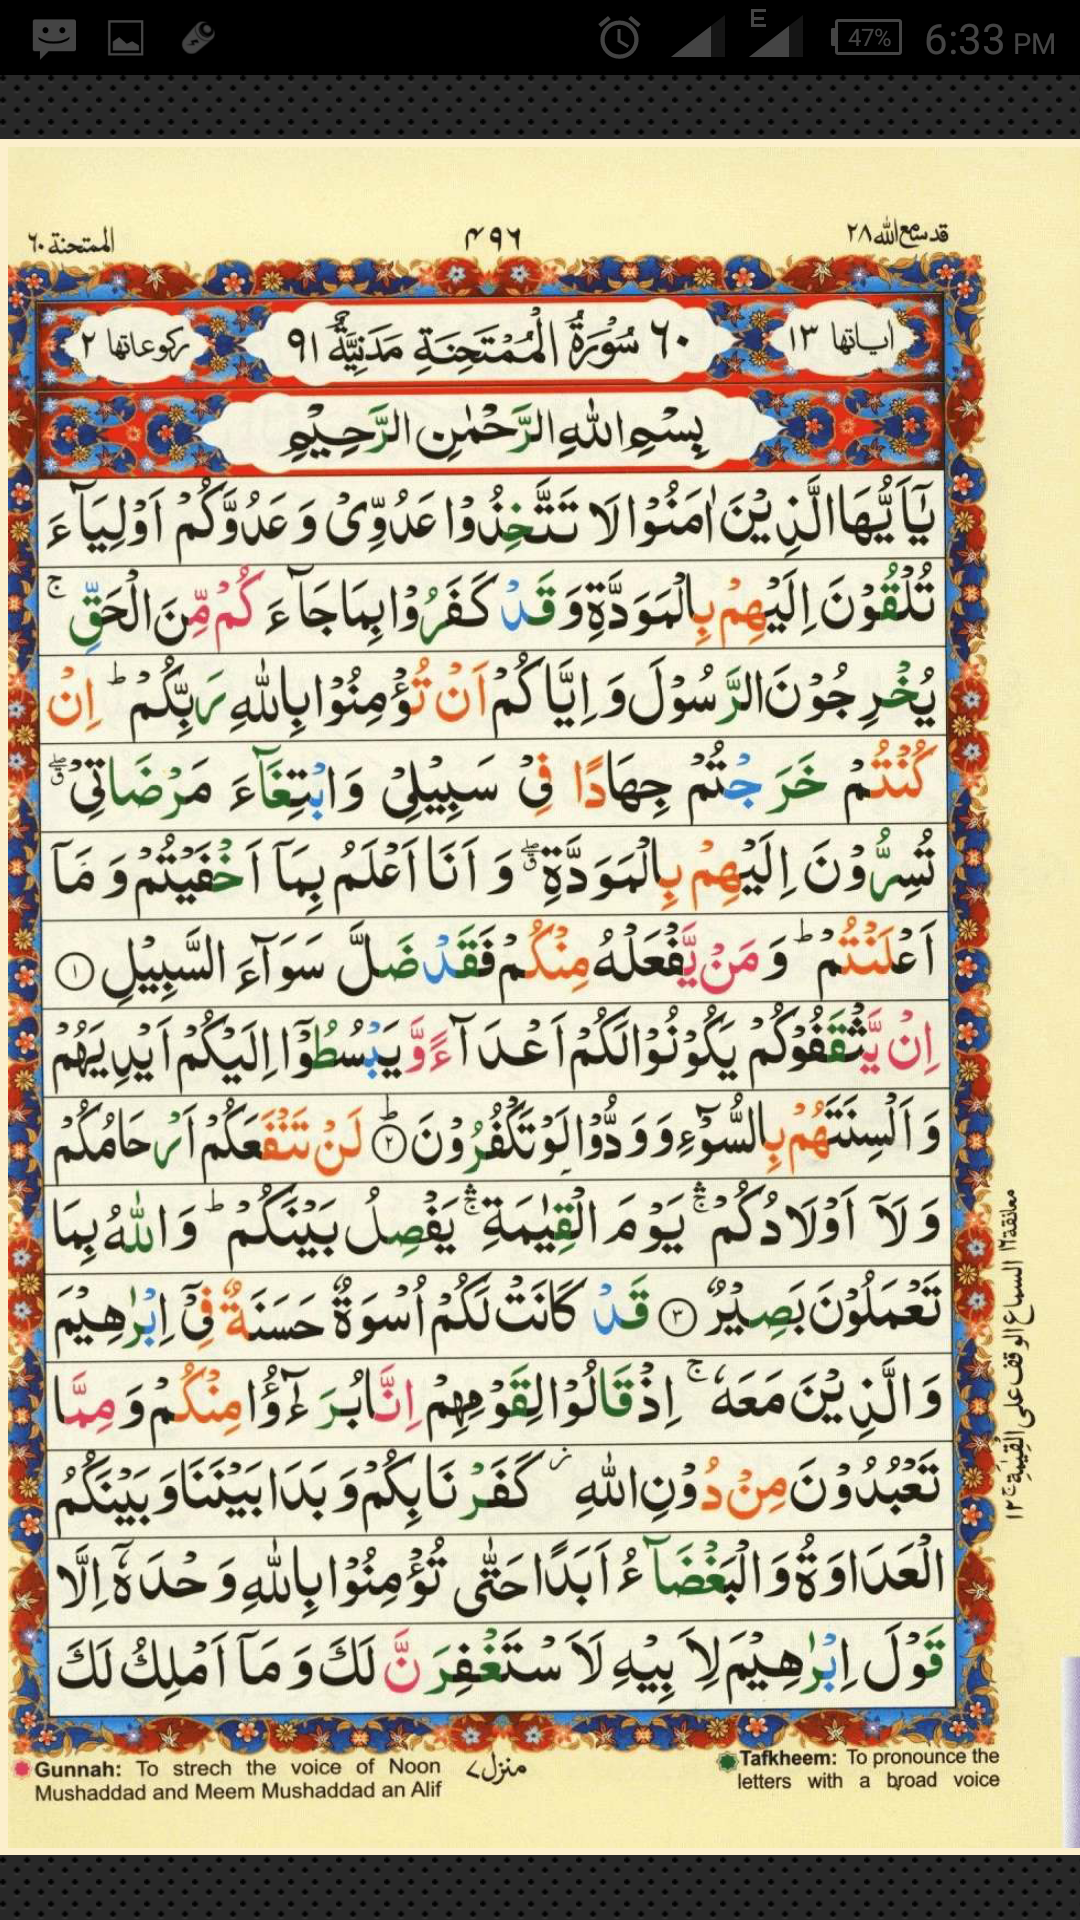 E 47% 6:33 PM
قد سمع الله ٢٨ ۴۹۶ الممتحنة ٦٠
اٰیاتها ١٣ ٦٠ سُوْرَةُ الْمُمْتَحِنَةِ مَدَنِيَّةٌ ٩١ ركوعاتها ٢
بِسْمِ اللّٰهِ الرَّحْمٰنِ الرَّحِيْمِ
يٰۤاَيُّهَا الَّذِيْنَ اٰمَنُوْا لَا تَتَّخِذُوْا عَدُوِّىْ وَ عَدُوَّكُمْ اَوْلِيَآءَ
تُلْقُوْنَ اِلَيْهِمْ بِالْمَوَدَّةِ وَ قَدْ كَفَرُوْا بِمَا جَآءَكُمْ مِّنَ الْحَقِّ ۚ
يُخْرِجُوْنَ الرَّسُوْلَ وَ اِيَّاكُمْ اَنْ تُؤْمِنُوْا بِاللّٰهِ رَبِّكُمْ ؕ اِنْ
كُنْتُمْ خَرَجْتُمْ جِهَادًا فِىْ سَبِيْلِىْ وَ ابْتِغَآءَ مَرْضَاتِىْ ۖۗ
تُسِرُّوْنَ اِلَيْهِمْ بِالْمَوَدَّةِ ۖۗ وَ اَنَا اَعْلَمُ بِمَاۤ اَخْفَيْتُمْ وَ مَاۤ
اَعْلَنْتُمْ ؕ وَ مَنْ يَّفْعَلْهُ مِنْكُمْ فَقَدْ ضَلَّ سَوَآءَ السَّبِيْلِ ١
اِنْ يَّثْقَفُوْكُمْ يَكُوْنُوْا لَكُمْ اَعْدَآءً وَّ يَبْسُطُوْۤا اِلَيْكُمْ اَيْدِيَهُمْ
وَ اَلْسِنَتَهُمْ بِالسُّوْٓءِ وَ وَدُّوْا لَوْ تَكْفُرُوْنَ ؕ ٢ لَنْ تَنْفَعَكُمْ اَرْحَامُكُمْ
وَ لَاۤ اَوْلَادُكُمْ ۛۚ يَوْمَ الْقِيٰمَةِ ۛۚ يَفْصِلُ بَيْنَكُمْ ؕ وَ اللّٰهُ بِمَا
تَعْمَلُوْنَ بَصِيْرٌ ٣ قَدْ كَانَتْ لَكُمْ اُسْوَةٌ حَسَنَةٌ فِىْۤ اِبْرٰهِيْمَ
وَ الَّذِيْنَ مَعَهٗ ۚ اِذْ قَالُوْا لِقَوْمِهِمْ اِنَّا بُرَءٰٓؤُا مِنْكُمْ وَ مِمَّا
تَعْبُدُوْنَ مِنْ دُوْنِ اللّٰهِ ؗ كَفَرْنَا بِكُمْ وَ بَدَا بَيْنَنَا وَ بَيْنَكُمُ
الْعَدَاوَةُ وَ الْبَغْضَآءُ اَبَدًا حَتّٰى تُؤْمِنُوْا بِاللّٰهِ وَحْدَهٗۤ اِلَّا
قَوْلَ اِبْرٰهِيْمَ لِاَبِيْهِ لَاَسْتَغْفِرَنَّ لَكَ وَ مَاۤ اَمْلِكُ لَكَ
معانقة ١٦ السماع الوقف على القيمة ١٢
منزل ٧
Gunnah: To strech the voice of Noon
Mushaddad and Meem Mushaddad an Alif
Tafkheem: To pronounce the
letters with a broad voice